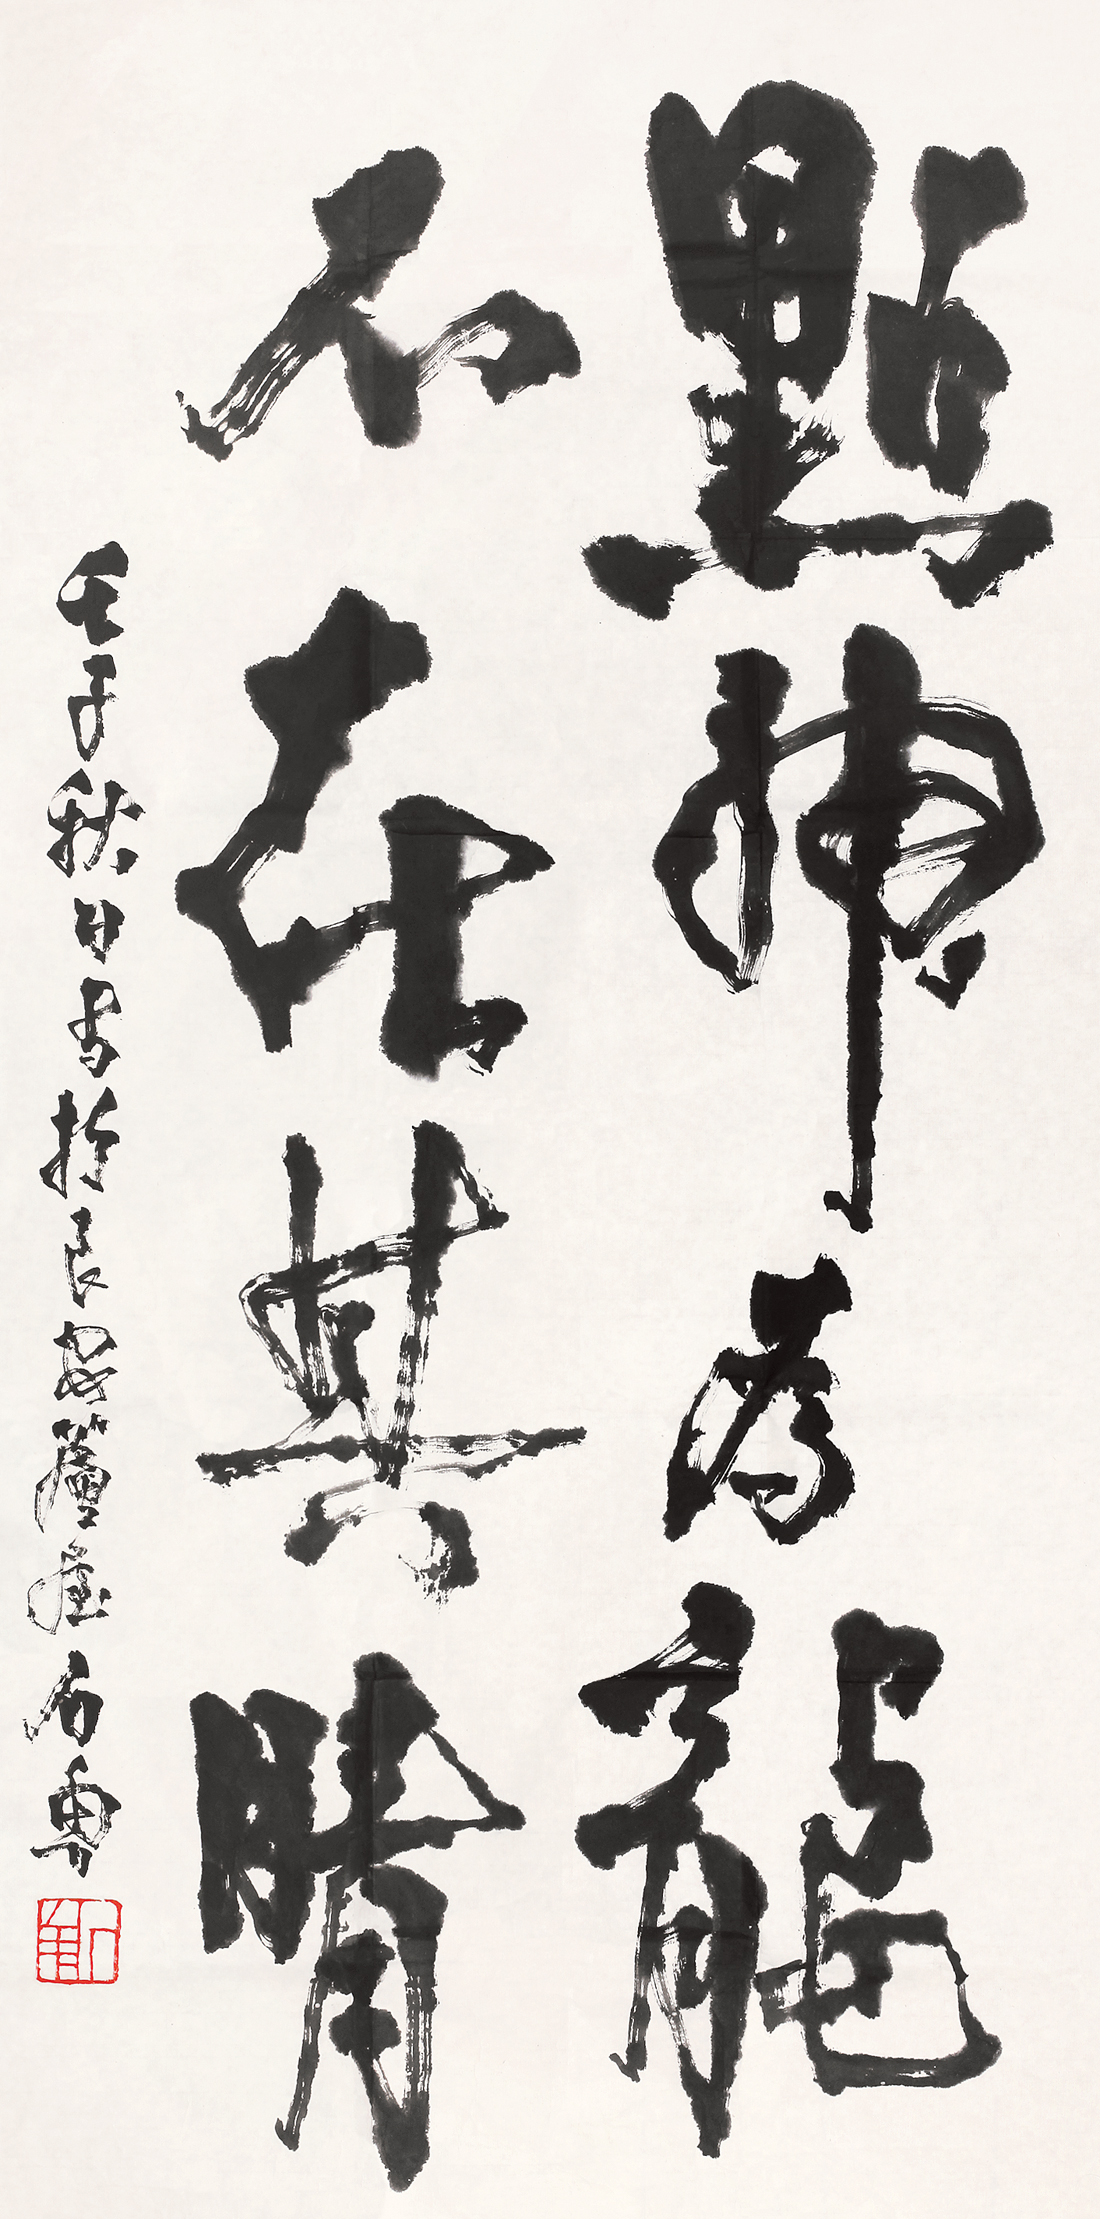 點神為龍
不在其睛
壬子秋日書於長安屋石魯